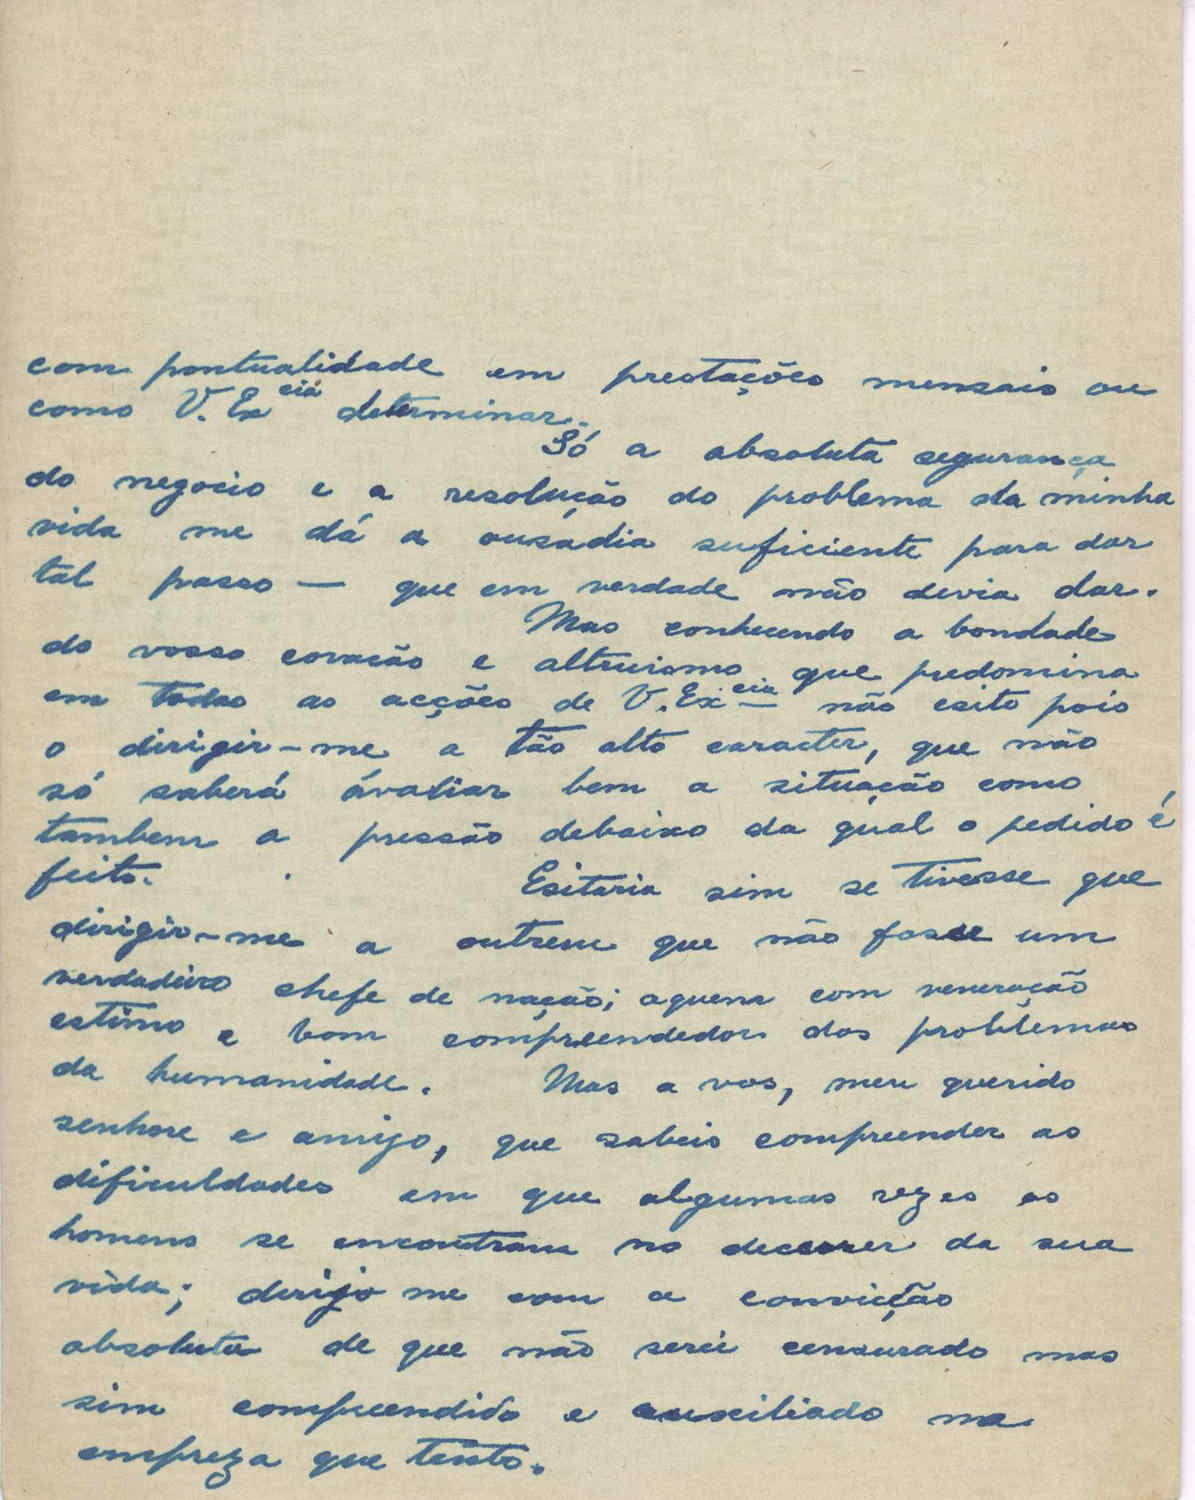 com pontualidade em prestações mensais ou
como V. Ex^cia determinar.
Só a absoluta segurança
do negocio e a resolução do problema da minha
vida me dá a ousadia suficiente para dar
tal passo — que em verdade não devia dar.
Mas conhecendo a bondade
do vosso coração e altruismo que predomina
em todas as acções de V. Ex^cia não esito pois
o dirigir-me a tão alto caracter, que não
só saberá ávaliar bem a situação como
tambem a pressão debaixo da qual o pedido é
feito. Esitaria sim se tivesse que
dirigir-me a outrem que não fosse um
verdadeiro chefe de nação; aquem com veneração
estimo e bom compreendedor dos problemas
da humanidade. Mas a vos, meu querido
senhore e amigo, que sabeis compreender as
dificuldades em que algumas vezes os
homens se encontram no decorrer da sua
vida; dirijo me com a convicção
absoluta de que não serei censurado mas
sim compreendido e auxiliado na
empreza que tento.